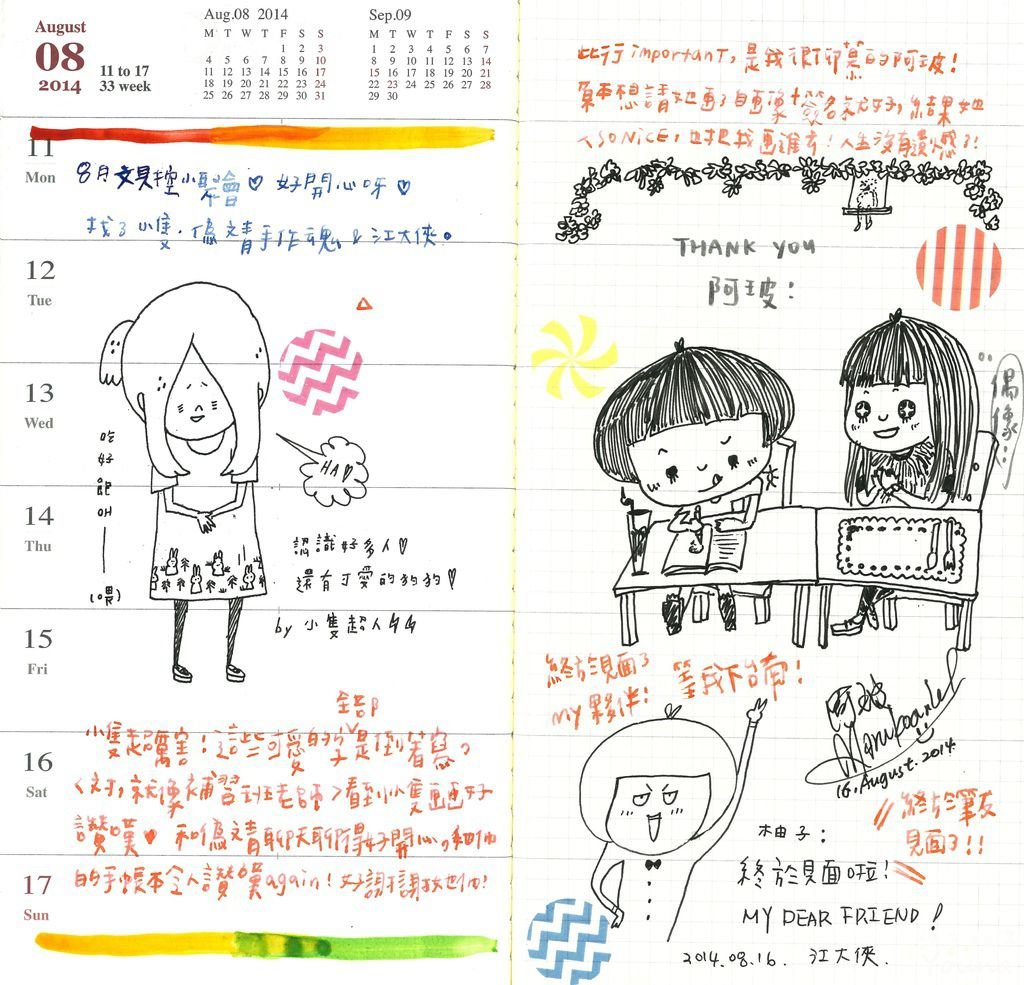 August
08
2014
11 to 17
33 week
Aug.08 2014
M T W T F S S
1 2 3
4 5 6 7 8 9 10
11 12 13 14 15 16 17
18 19 20 21 22 23 24
25 26 27 28 29 30 31
Sep.09
M T W T F S S
1 2 3 4 5 6 7
8 9 10 11 12 13 14
15 16 17 18 19 20 21
22 23 24 25 26 27 28
29 30
11
Mon
8月文具控小聚會♡ 好開心呀♡
找了小隻、偽文青手作魂 & 江大俠。
12
Tue
13
Wed
HA♡
吃好飽呀——(喂)
14
Thu
認識好多人♡
還有可愛的狗狗♡
by 小隻超人
15
Fri
全部
16
Sat
小隻超厲害!這些可愛的字是倒著寫。
<對,就像補習班老師>看到小隻畫畫好
讚嘆♥ 和偽文青聊天聊得好開心,和他
的手帳本令人讚嘆again! 好謝謝他們!
17
Sun
此行important,是我很仰慕的阿玻!
原本想請她畫了自畫像+簽名就好,結果她
人SO NICE,也把我畫進去!人生沒有遺憾了!!
THANK YOU
阿玻:
偶像:
終於見面了
my 夥伴!
等我下台南!
阿玻
16.August.2014
//終於筆友
見面了!!
柚子:
終於見面啦!
MY DEAR FRIEND!
2014.08.16. 江大俠.